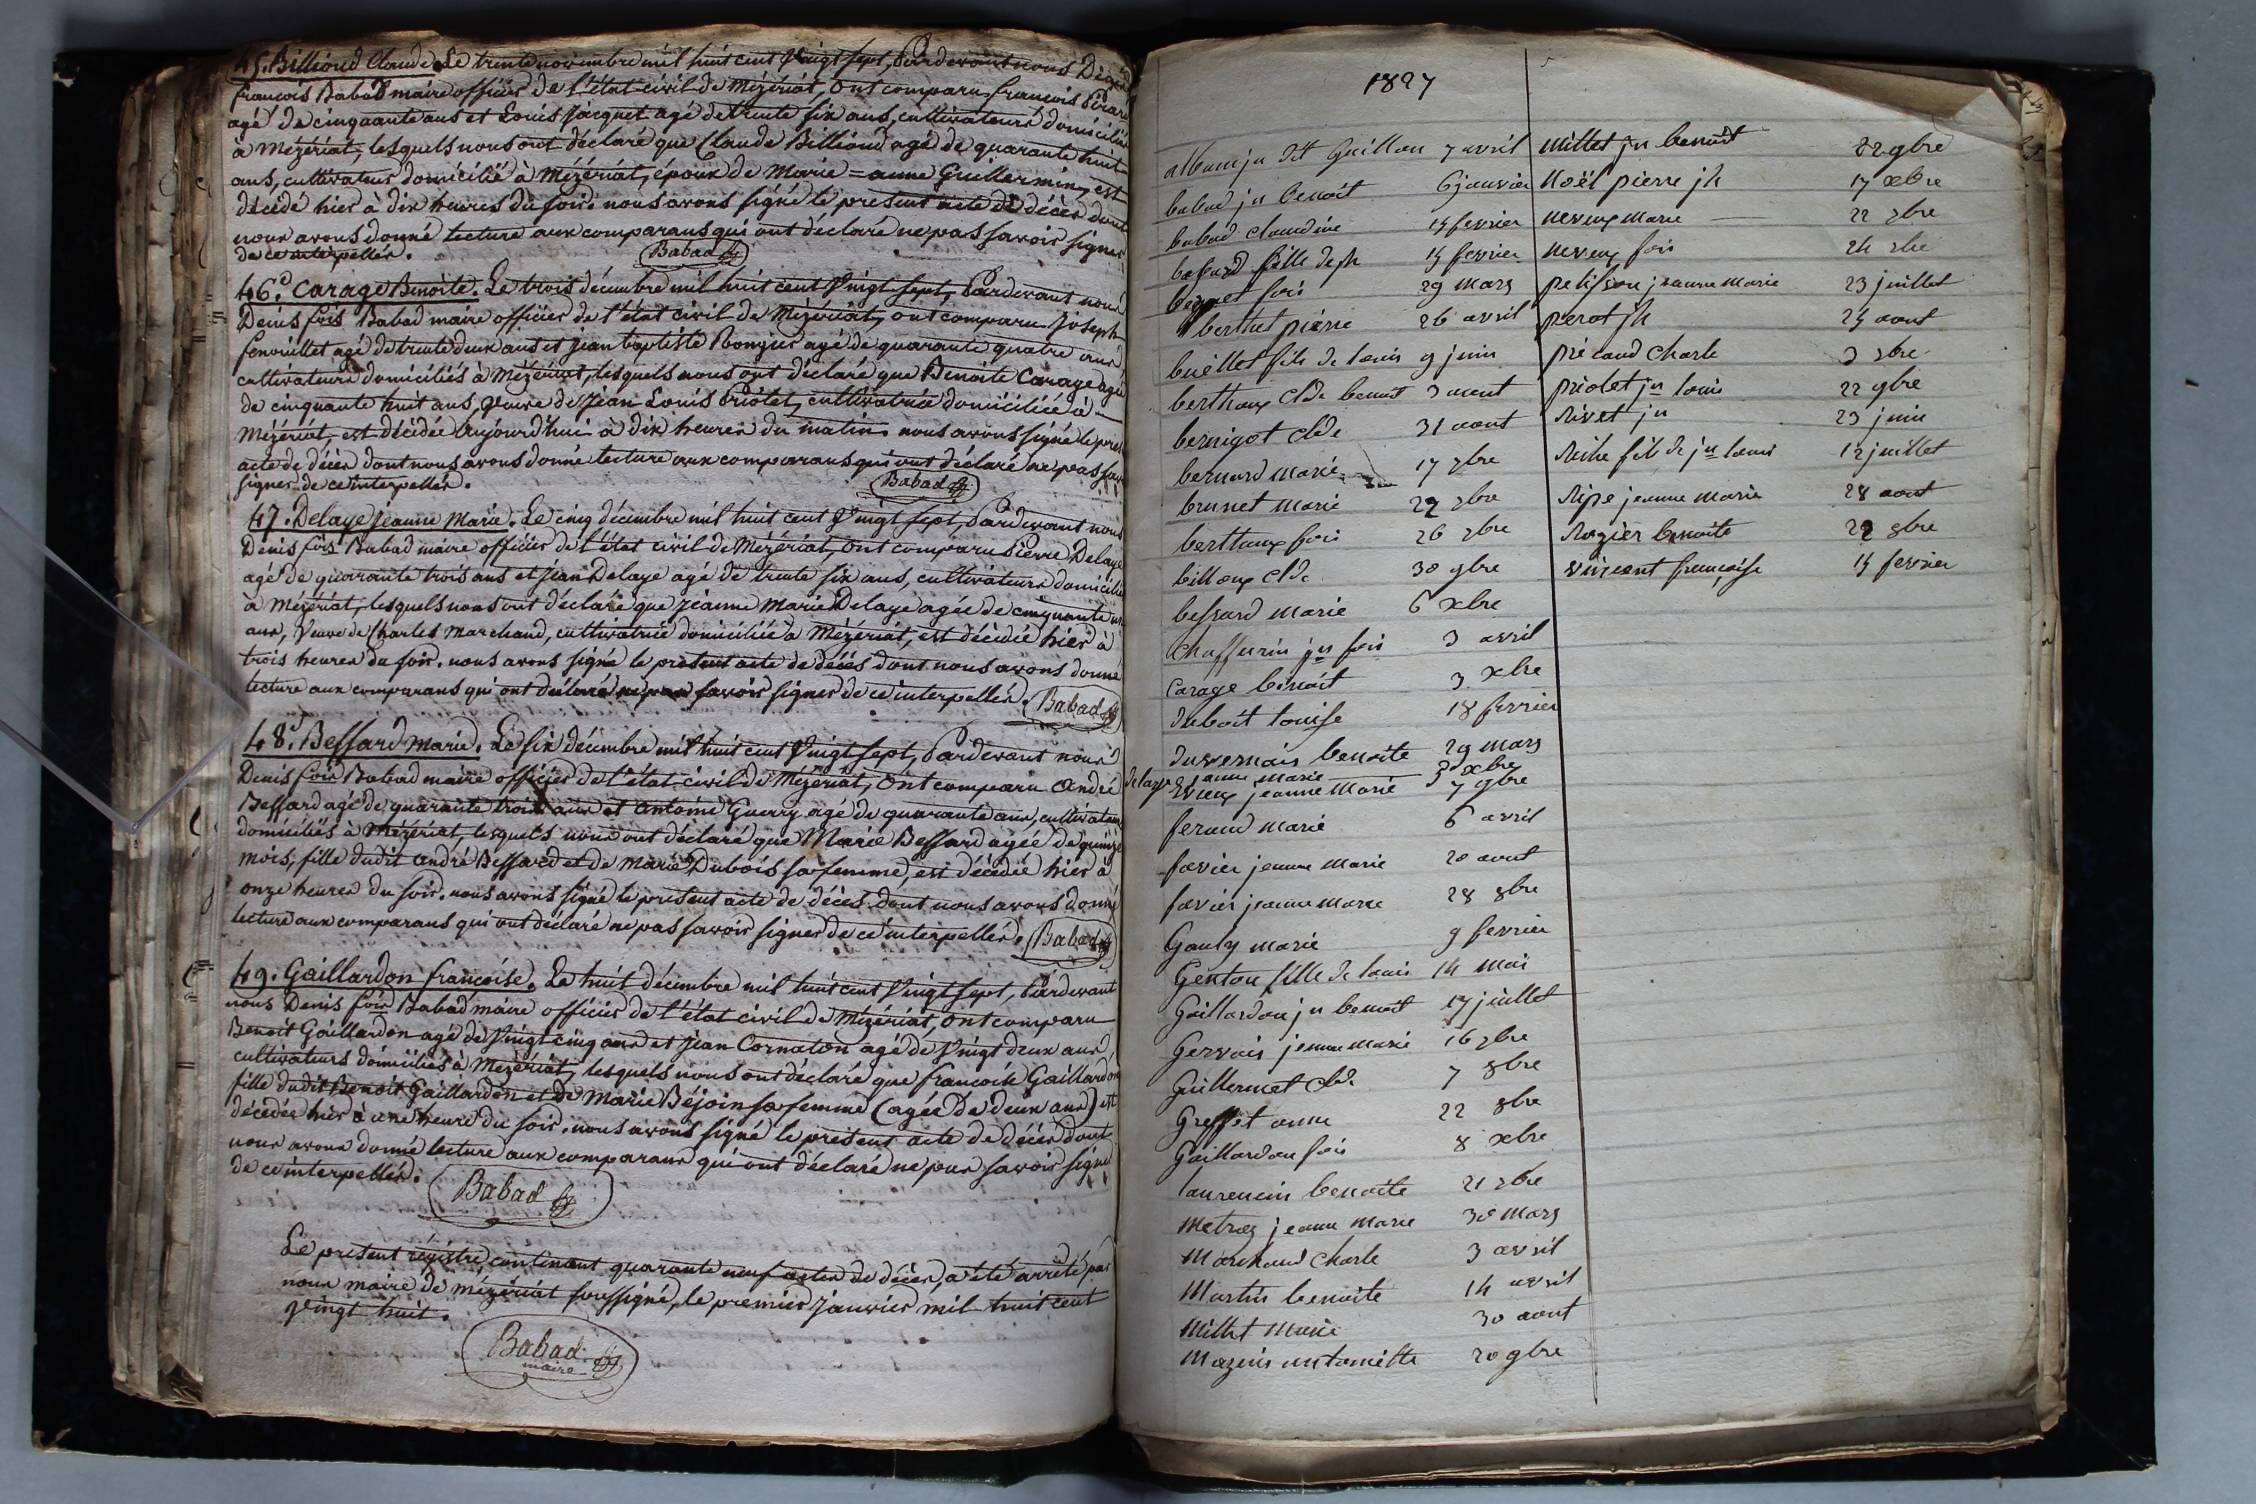 45. Billioud Claude. Le trente novembre mil huit cent vingt sept, Pardevant nous Denis
françois Babad maire officier de l'état civil de Mézériat, ont comparu françois
agé de cinquante ans et Louis Jacquet agé de trente six ans, cultivateurs domiciliés
à Mézériat, lesquels nous ont déclaré que Claude Billioud agé de quarante huit
ans, cultivateur domicilié à Mézériat, époux de Marie = anne Guillermin, est
décédé hier à dix heures du soir. nous avons signé le présent acte de décès dont
nous avons donné lecture aux comparans qui ont déclaré ne pas savoir signer
de ce interpellés. Babad
46. Carage Benoite. Le trois décembre mil huit cent vingt sept, Pardevant nous
Denis fois Babad maire officier de l'état civil de Mézériat, ont comparu Joseph
fenouillet agé de trente deux ans et jean baptiste Rongier agé de quarante quatre ans,
cultivateurs domiciliés à Mézériat, lesquels nous ont déclaré que Benoite Carage agée
de cinquante huit ans, veuve de Jean Louis Priolet, cultivatrice domiciliée à
Mézériat, est décédée aujourd'hui à dix heures du matin. nous avons signé le prés
acte de décès dont nous avons donné lecture aux comparans qui ont déclaré ne pas sav
signer de ce interpellés. Babad
47. Delaye jeanne Marie. Le cinq décembre mil huit cent vingt sept, Pardevant nous
Denis fois Babad maire officier de l'état civil de Mézériat, ont comparu Pierre Delaye
agé de quarante trois ans et jean Delaye agé de trente six ans, cultivateurs domiciliés
à Mézériat, lesquels nous ont déclaré que jeanne Marie Delaye agée de cinquante
ans, veuve de Charles Marchand, cultivatrice domiciliée à Mézériat, est décédée hier à
trois heures du soir. nous avons signé le présent acte de décès dont nous avons donné
lecture aux comparans qui ont déclaré ne pas savoir signer de ce interpellés. Babad
48. Bessard Marie. Le six décembre mil huit cent vingt sept, Pardevant nous
Denis fois Babad maire officier de l'état civil de Mézériat, ont comparu André
Bessard agé de quarante trois ans et Antoine Guerry agé de quarante ans, cultivateurs
domiciliés à Mézériat, lesquels nous ont déclaré que Marie Bessard agée de quinze
mois, fille dudit andré Bessard et de Marie Dubois sa femme, est décédée hier à
onze heures du soir. nous avons signé le présent acte de décès dont nous avons donné
lecture aux comparans qui ont déclaré ne pas savoir signer de ce interpellés. Babad
49. Gaillardon françoise. Le huit décembre mil huit cent vingt sept, Pardevant
nous Denis fois Babad maire officier de l'état civil de Mézériat, ont comparu
Benoit Gaillardon agé de vingt cinq ans et jean Cornaton agé de vingt deux ans
cultivateurs domiciliés à Mézériat, lesquels nous ont déclaré que françoise Gaillardon
fille dudit Benoit Gaillardon et de Marie Béjoin sa femme (agée de deux ans) est
décédée hier à une heure du soir. nous avons signé le présent acte de décès dont
nous avons donné lecture aux comparans qui ont déclaré ne pas savoir signer
de ce interpellés. Babad
Le présent régistre, contenant quarante neuf actes de décès, a été arrêté par
nous maire de mézériat soussigné, le premier janvier mil huit cent
vingt huit.
Babad
maire
1827
jn dit Guillon 7 avril
babad jn benoit 6 janvier
babad claudine 15 fevrier
bessard fille de jh 15 fevrier
fois 29 mars
berthet pierre 26 avril
buellet fils de louis 9 juin
berthoux cl.de benoit 3 aout
bernigot cl.de 31 aout
bernard marie 17 7bre
brunet marie 22 7bre
berthoux fois 26 7bre
billoux cl.de 30 9bre
bessard marie 6 xbre
chaffurin jn fois 3 avril
carage benoit 3 xbre
duboit louise 18 fevrier
duvernais benoite 29 mars
delaye jeanne marie 5 xbre
jeanne marie 7 9bre
feraud marie 6 avril
favier jeanne marie 20 aout
favier jeanne marie 28 8bre
Gauly marie 9 fevrier
Genton fille de louis 14 mai
Gaillardon jn benoit 17 juillet
Gervais jeanne marie 16 7bre
Guillermet cl.de 7 8bre
Greffet anne 22 8bre
Gaillardon fois 8 xbre
laurencin benoite 21 7bre
Metras jeanne marie 30 mars
Marchand Charle 3 avril
Martin benoite 14 avril
Millet Marie 30 aout
Mazuis antoinette 20 9bre
Millet jn benoit 22 9bre
Noël pierre jh 17 xbre
neveux marie 22 7bre
neveux fois 24 7bre
pelisson jeanne marie 23 juillet
perot jh 25 aout
précaud Charle 3 7bre
priolet jn louis 22 9bre
Rivet jn 23 juin
fils de jn louis 12 juillet
jeanne marie 28 aout
Rogier benoite 22 8bre
vincent françoise 15 fevrier